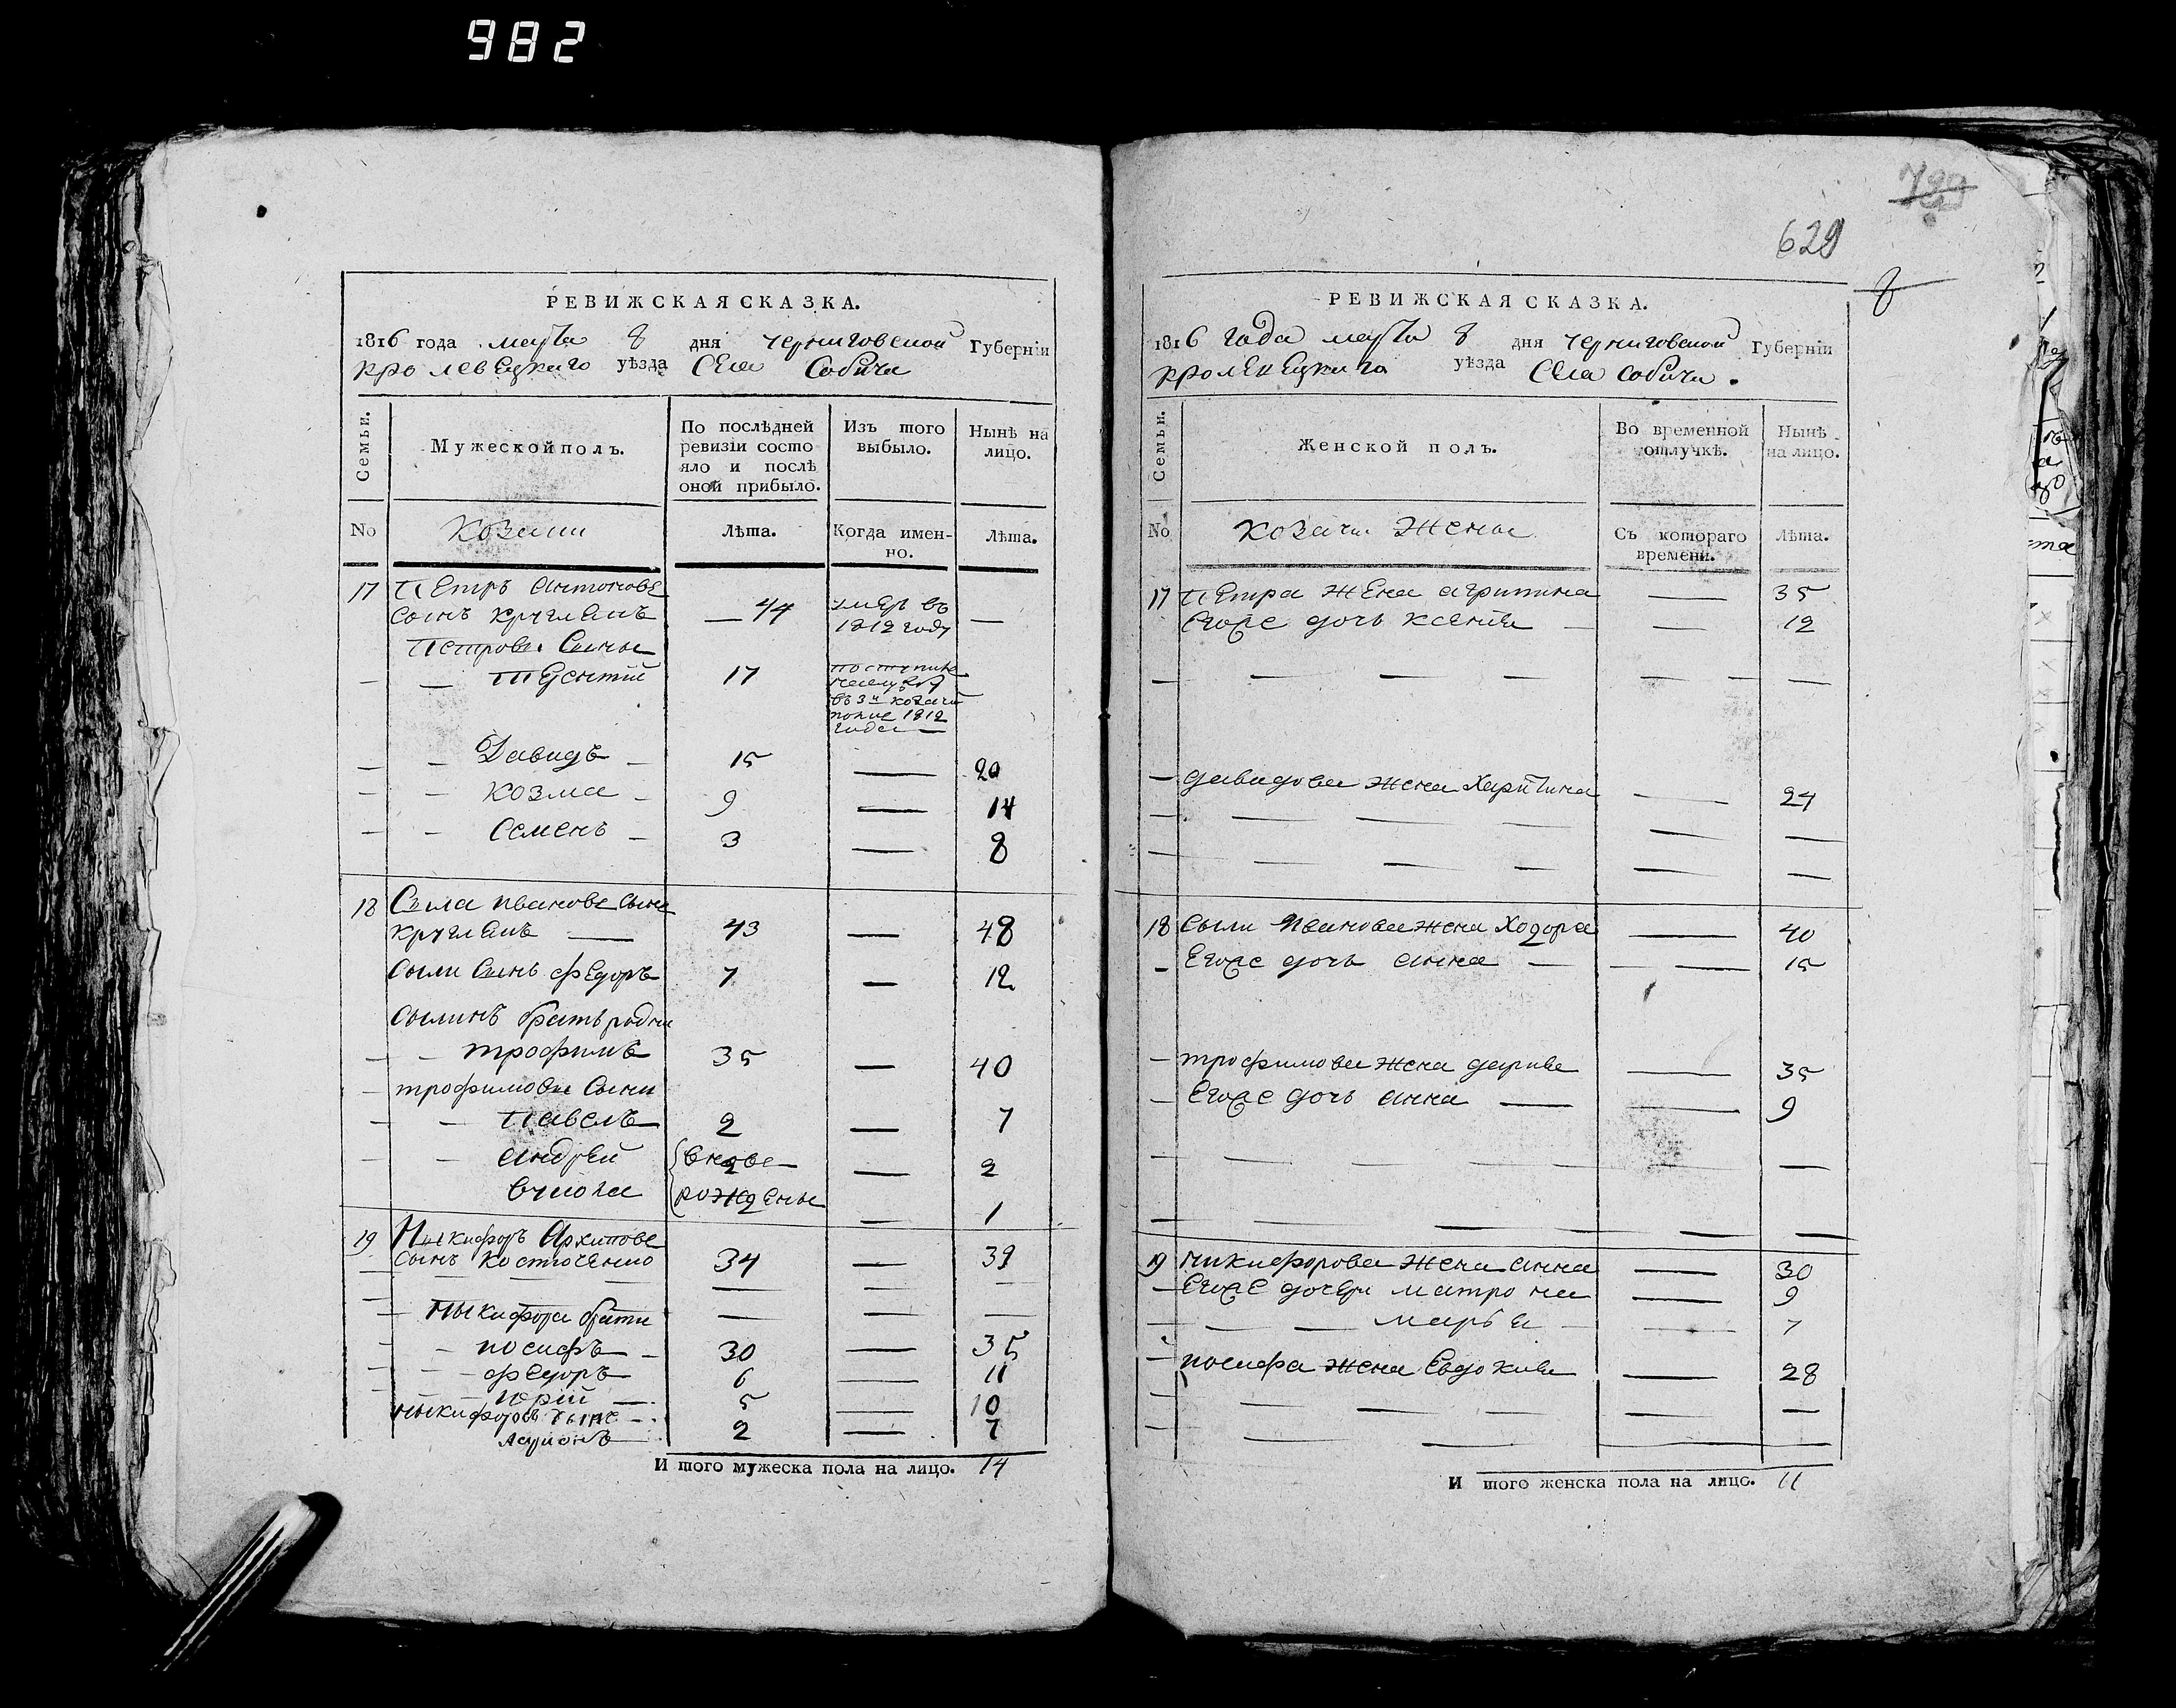 982
629
8
РЕВИЖСКАЯ СКАЗКА.
1816 года марта 8 дня черниговской Губерніи
кролевецкаго уѣзда Села Собича
Семьи.
Мужеской полъ.
По послѣдней ревизіи состояло и послѣ оной прибыло.
Изъ того выбыло.
Нынѣ на лицо.
No
козаки
Лѣта.
Когда именно.
Лѣта.
17 Петръ антоновъ
сынъ круглякъ — 44 умер въ 1812 году —
Петрови Сыны
— — Терентій 17 поступил въ 3й козачій полкъ 1812 года —
— — Давидъ — 15 — 20
— — козма — 9 — 14
— — семенъ — 3 — 8
18 Сыла ивановъ сынъ
круглякъ — 43 — 48
сыли сынъ федоръ 7 — 12
сылинъ братъ родни
— — трофимъ 35 — 40
— трофимови сыни
— — павелъ 2 — 7
— — андрей вновь — 2
рождены — 1
19 Никифоръ Архиповъ
сынъ Костюченко 34 — 39
— Ныкифора брати — — —
— — иосифъ — 30 — 35
— — федоръ 6 — 11
— — юрій — 5 — 10
ныкифоровъ сынъ —
Ларионъ 2 — 7
И того мужеска пола на лицо. 14
РЕВИЖСКАЯ СКАЗКА.
1816 года марта 8 дня черниговской Губерніи
кролевецкаго уѣзда Села собича.
Семьи.
Женской полъ.
Во временной отлучкѣ.
Нынѣ на лицо.
No
козачи жены
Съ котораго времени.
Лѣта.
17 Петра жена агрипина — 35
Егоже дочь ксенія — — 12
— давидова жена Харитина — 24
18 сыли иванова жена Ходора — 40
— Егоже дочь анна — — 15
— трофимова жена дария — 35
— Егоже дочь анна — — 9
19 никифорова жена анна — 30
— Егоже дочери матрона — 9
— — — марья — — 7
— иосифа жена Евдокия — 28
И того женска пола на лицо. 11